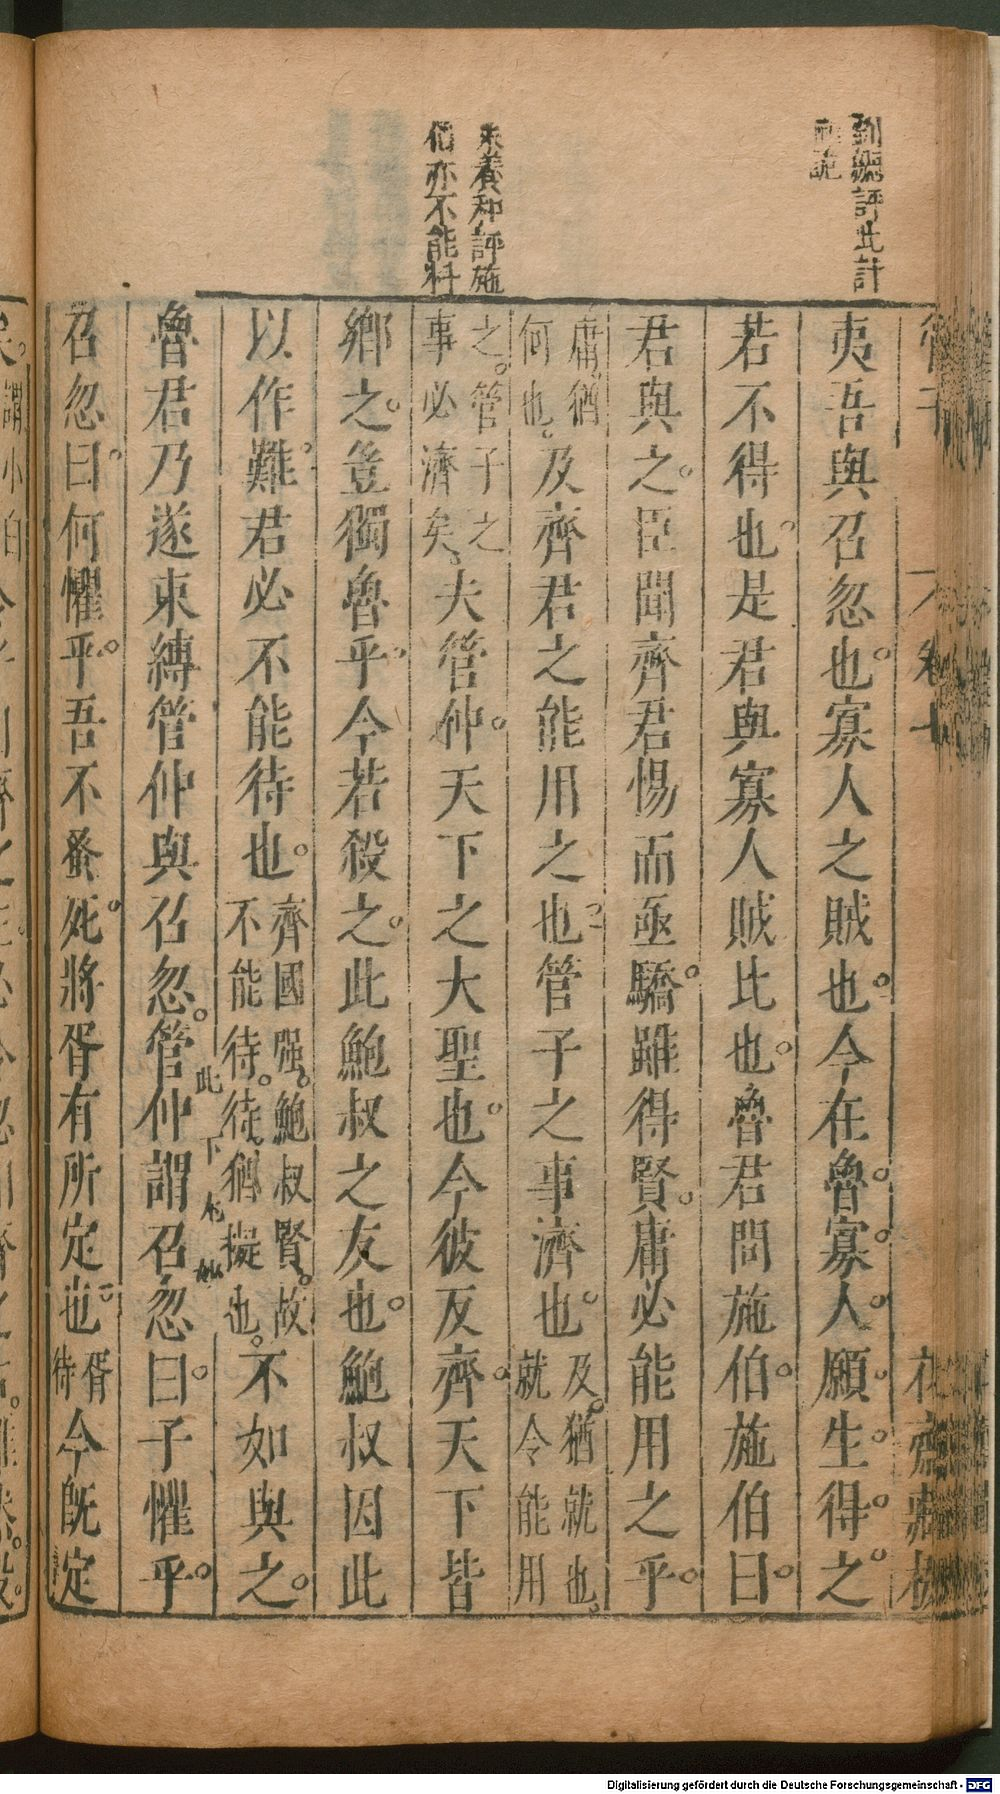 評此計
朱養和評施
伯亦不能料
管子
卷七
花齋藏板
夷吾與召忽也寡人之賊也今在魯寡人願生得之
若不得也是君與寡人賊比也魯君問施伯施伯曰
君與之臣聞齊君惕而亟驕雖得賢庸必能用之乎
庸猶
何也
及齊君之能用之也管子之事濟也
及猶就也
就令能用
之管子之
事必濟矣
夫管仲天下之大聖也今彼反齊天下皆
鄉之豈獨魯乎今若殺之此鮑叔之友也鮑叔因此
以作難君必不能待也
齊國强鮑叔賢故
不能待待猶擬也
不如與之
魯君乃遂束縛管仲與召忽管仲謂召忽曰子懼乎
此下
召忽曰何懼乎吾不蚤死將胥有所定也
胥
待
今既定
Digitalisierung gefördert durch die Deutsche Forschungsgemeinschaft - DFG